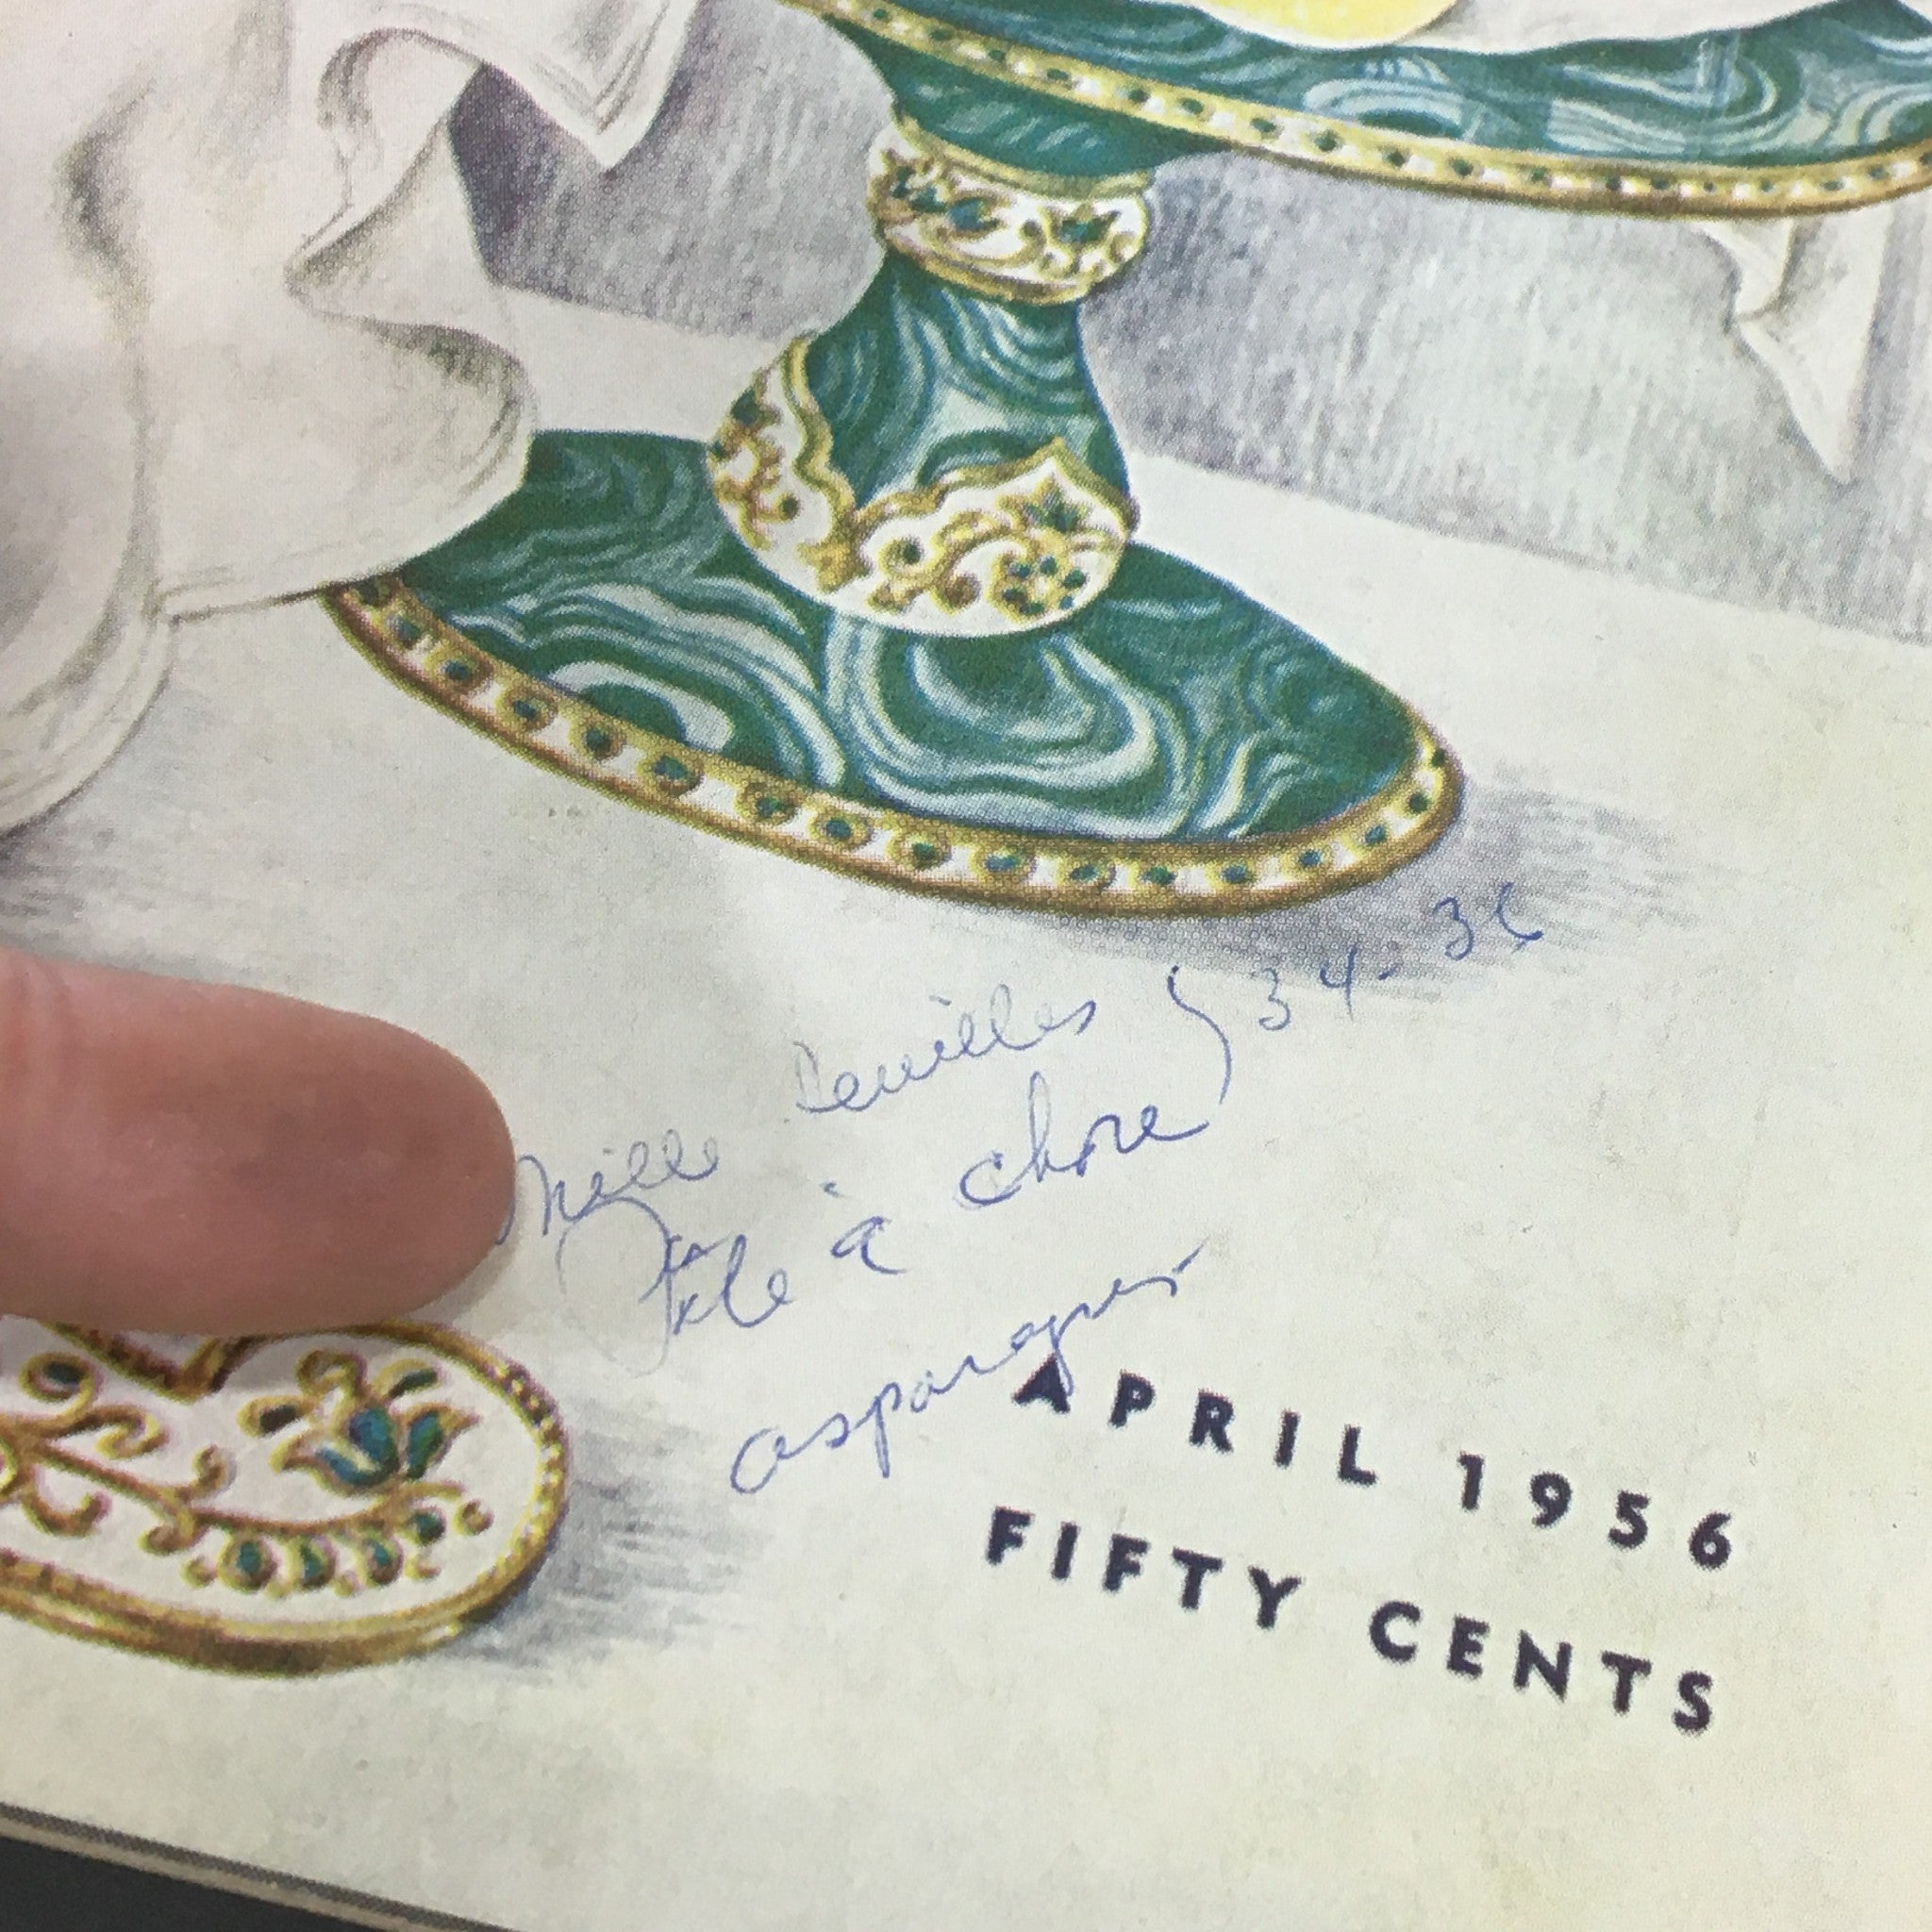 Mille Feuilles } 34-36
Pâte à choue
asparagus
APRIL 1956
FIFTY CENTS